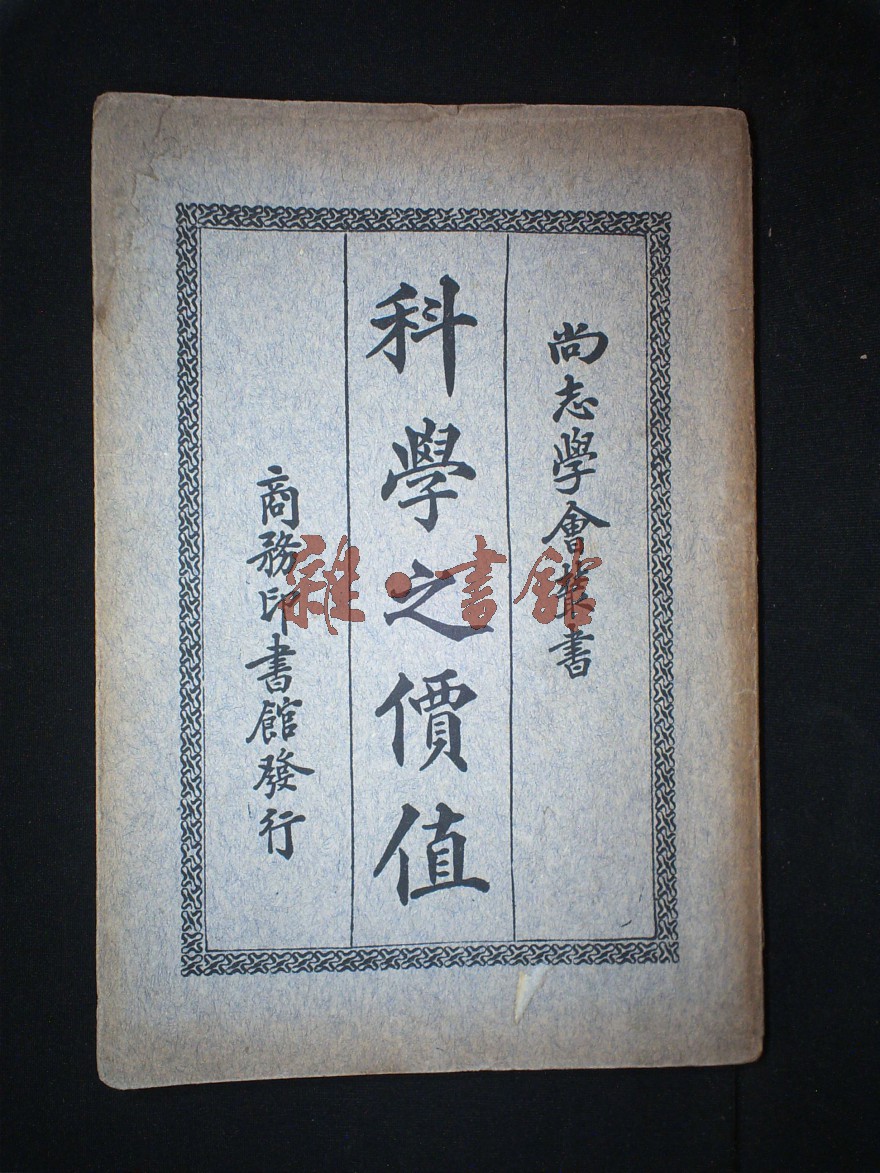 尚志學會叢書
科學之價值
商務印書館發行
雜·書館